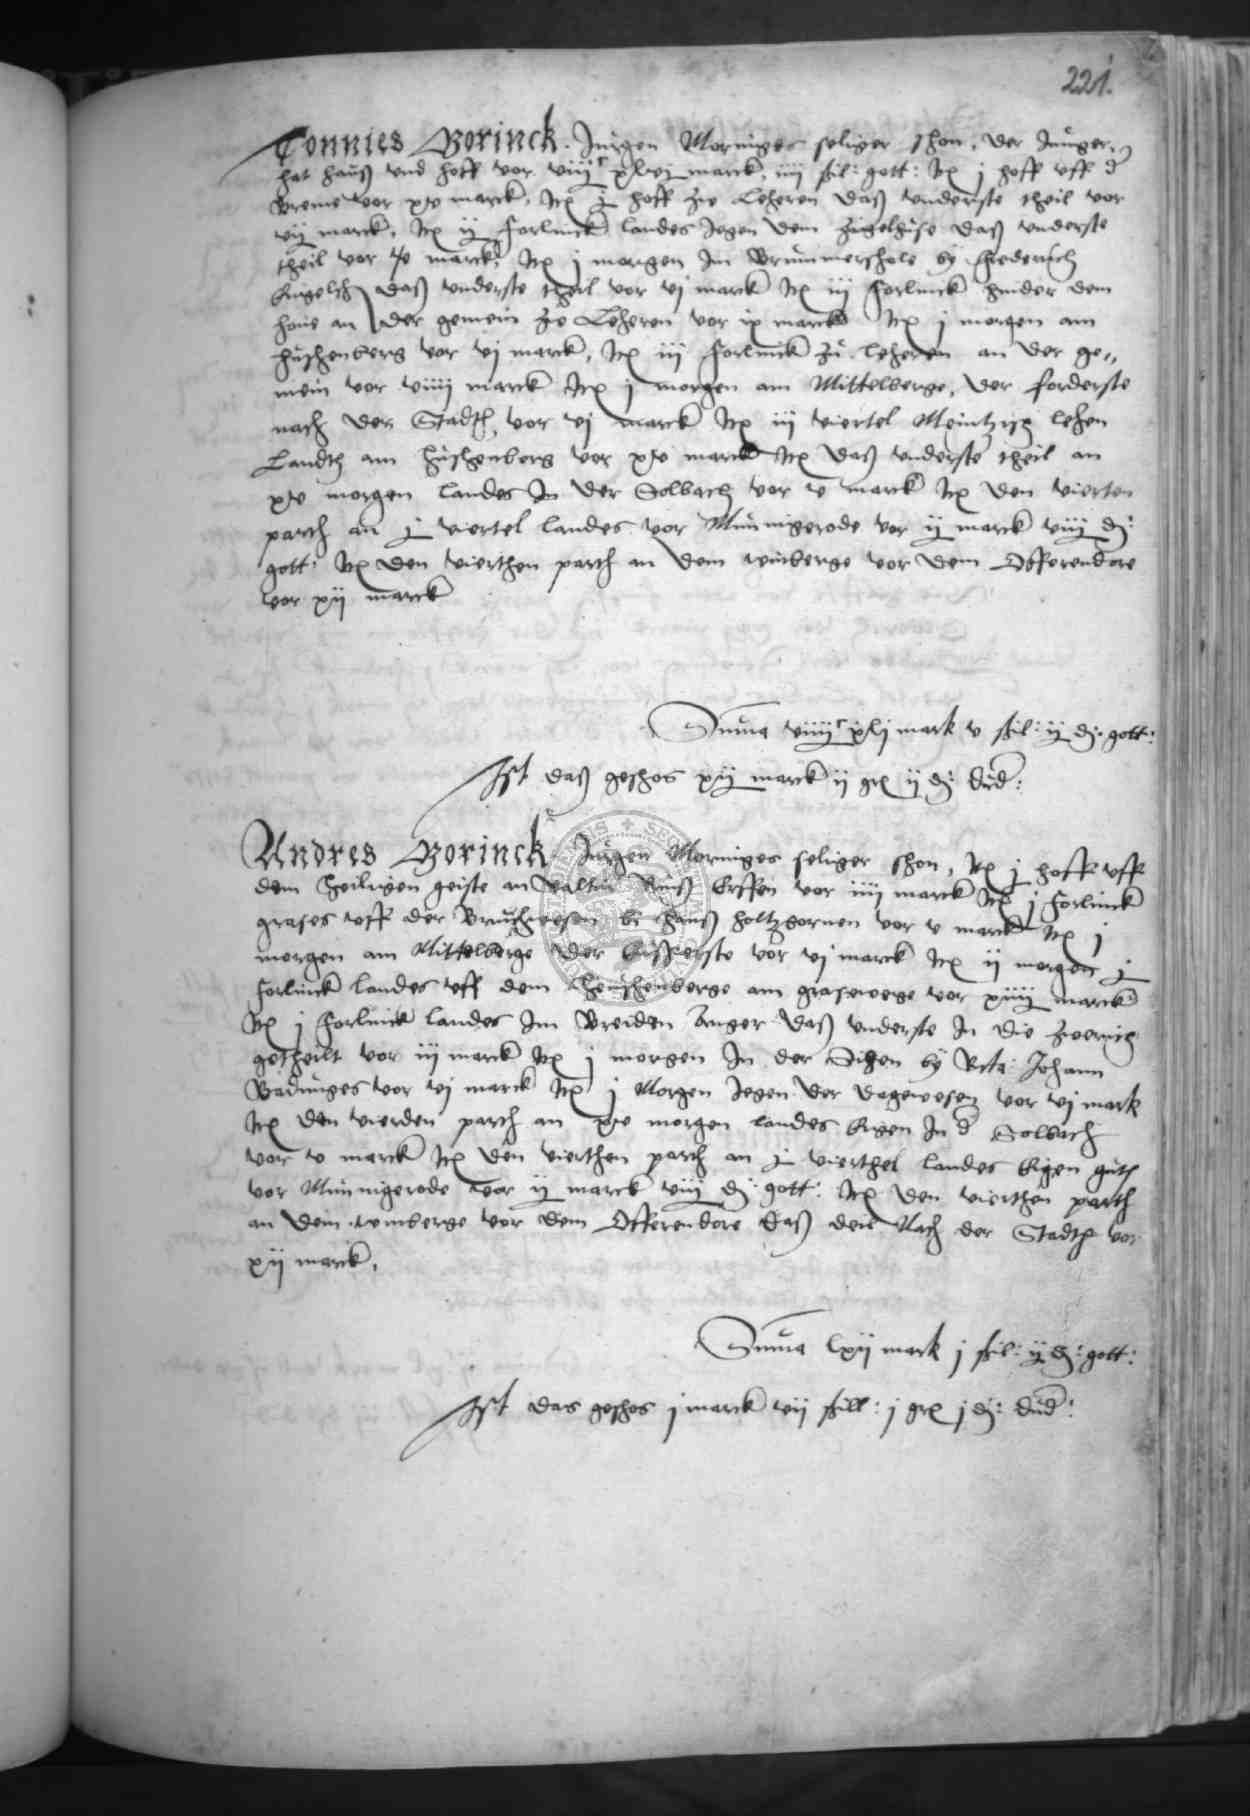 221.
Tonnies Borinck. Jurgen Morninges seliger shon, der Junger,
hat hauß und hoff vor viiij c xlvj marck, iiij ßil: gott: Itē j hoff uff d
Breme vor xv marck, Itē j hoff zu Leheren daß underste theil vor
vij marck, Itē ij forlinck landes Jegen dem Zigelhuse daß underste
theil vor marck, Itē j morgen Im Brummershole by frederich
daß underste theil vor vj marck Itē iij forlinck hinder dem
have an der gemein zu Leheren vor ix marck Itē j morgen am
hushenberg vor vj marck, Itē iij forlinck zu leheren an der ge„
mein vor viiij marck Itē j morgen am Mittelberge, der forderste
nach der Stadth vor vj marck Itē iij viertel Meintzish lehen
Landth am hushenberg vor xv marck Itē daß underste theil an
xv morgen landes In der Solbach vor v marck Itē den vierten
parth an j viertel landes vor Munnigerode vor ij marck viij ₰:
gott: Itē den vierthen parth an dem winberge vor dem Offerendore
vor xij marck
Suma viiij c xlj mark v ßil: ij ₰: gott:
Ist daß geshos xij marck ij grē ij ₰: dud:
Andres Borinck Jurgen Morninges seliger shon, Itē j hoff uff
dem heiligen geiste an Erffen vor iiij marck Itē j forlinck
grases uff der hanß holtzbornen vor v marck Itē j
morgen am Mittelberge der vor vj marck Itē ij morgen j
forlinck landes uff dem heushenberge am grasewege vor xiiij marck
Itē j forlinck landes Im Breiden Anger daß underste In die
getheilt vor iij marck Itē j morgen In der by Johann
vor vj marck Itē j Morgen Jegen der vor vj mark
Itē den vierden parth an xv morgen landes Eigen In d Solbach
vor v marck Itē den vierthen parth an j vierthel landes Eigen guth
vor Munnigerode vor ij marck viij ₰: gott: Itē den vierthen parth
an dem winberge vor dem Offerendore daß deil Nach der Stadth vor
xij marck,
Suma lxij mark j ßil: ij ₰: gott:
Ist das geshos j marck vij ßill: j grē j ₰: dud: